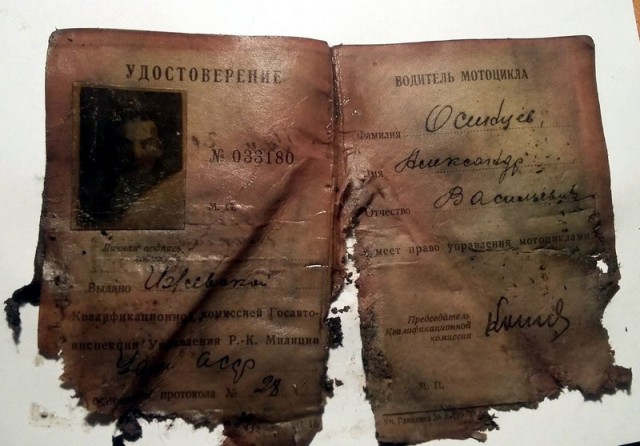 УДОСТОВЕРЕНИЕ
№ 033180
М. П.
Личная подпись
Выдано Ижевской
Квалификационной комиссией Госавто-
инспекции Управления Р.-К. Милиции
Удм АССР
протокола № 28
ВОДИТЕЛЬ МОТОЦИКЛА
Фамилия Осинцев
Имя Александр
Отчество Васильевич
Имеет право управления мотоциклами
Председатель
Квалификационной
комиссии
М. П.